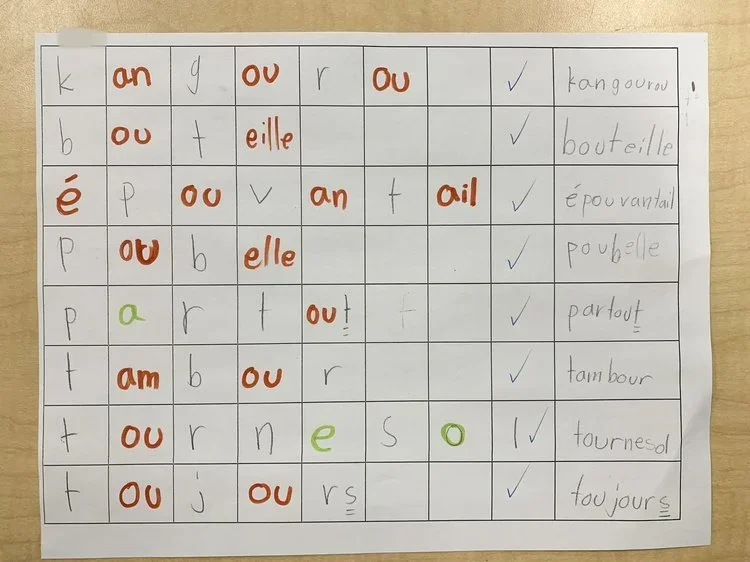 k an g ou r ou ✓ kangourou
b ou t eille ✓ bouteille
é p ou v an t ail ✓ épouvantail
p ou b elle ✓ poubelle
p a r t out t ✓ partout
t am b ou r ✓ tambour
t ou r n e s o l ✓ tournesol
t ou j ou rs ✓ toujours